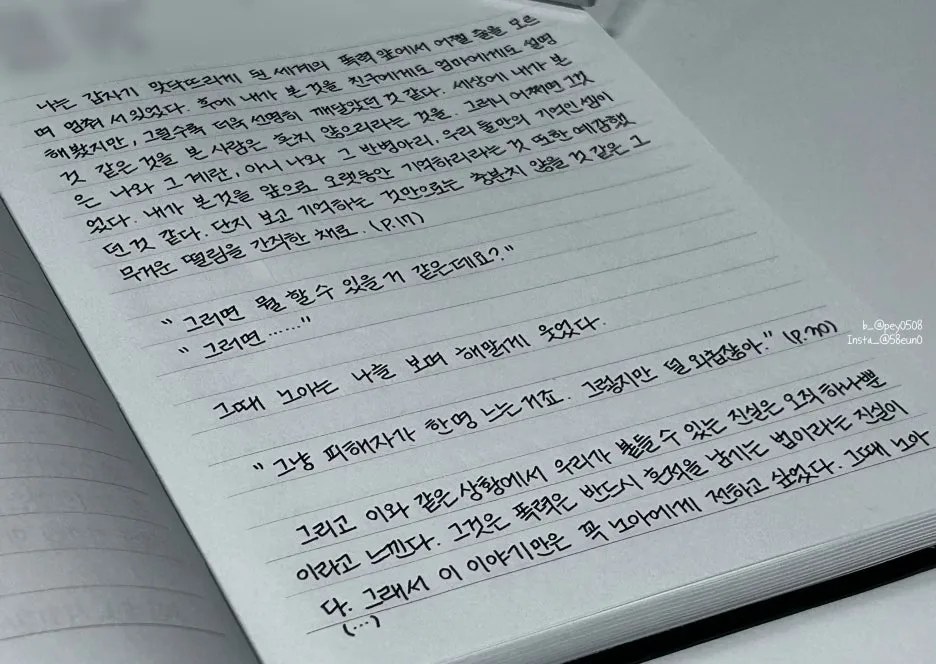 나는 갑자기 맞닥뜨리게 된 세계의 폭력 앞에서 어쩔 줄을 모르
며 멈춰 서있었다. 후에 내가 본 것을 친구에게도 엄마에게도 설명
해 봤지만, 그럴수록 더욱 선명히 깨달았던 것 같다. 세상에 내가 본
것 같은 것을 본 사람은 흔치 않으리라는 것을. 그러니 어쩌면 그것
은 나와 그 계란, 아니 나와 그 반병아리, 우리 둘만의 기억의 섬이
었다. 내가 본것을 앞으로 오랫동안 기억하리라는 것 또한 예감했
던 것 같다. 단지 보고 기억하는 것만으로는 충분치 않을 것 같은 그
무거운 떨림을 간직한 채로. (P.17)
" 그러면 뭘 할 수 있을거 같은데요?"
" 그러면 ......"
그때 노아는 나를 보며 해맑게 웃었다.
" 그냥 피해자가 한명 느는거죠. 그렇지만 덜 외롭잖아." (P.20)
그리고 이와 같은 상황에서 우리가 붙들수 있는 진실은 오직 하나뿐
이라고 느낀다. 그것은 폭력은 반드시 흔적을 남기는 법이라는 진실이
다. 그래서 이 이야기만은 꼭 노아에게 전하고 싶었다. 그때 노아
(...)
b_@pey0508
Insta_@58eun0